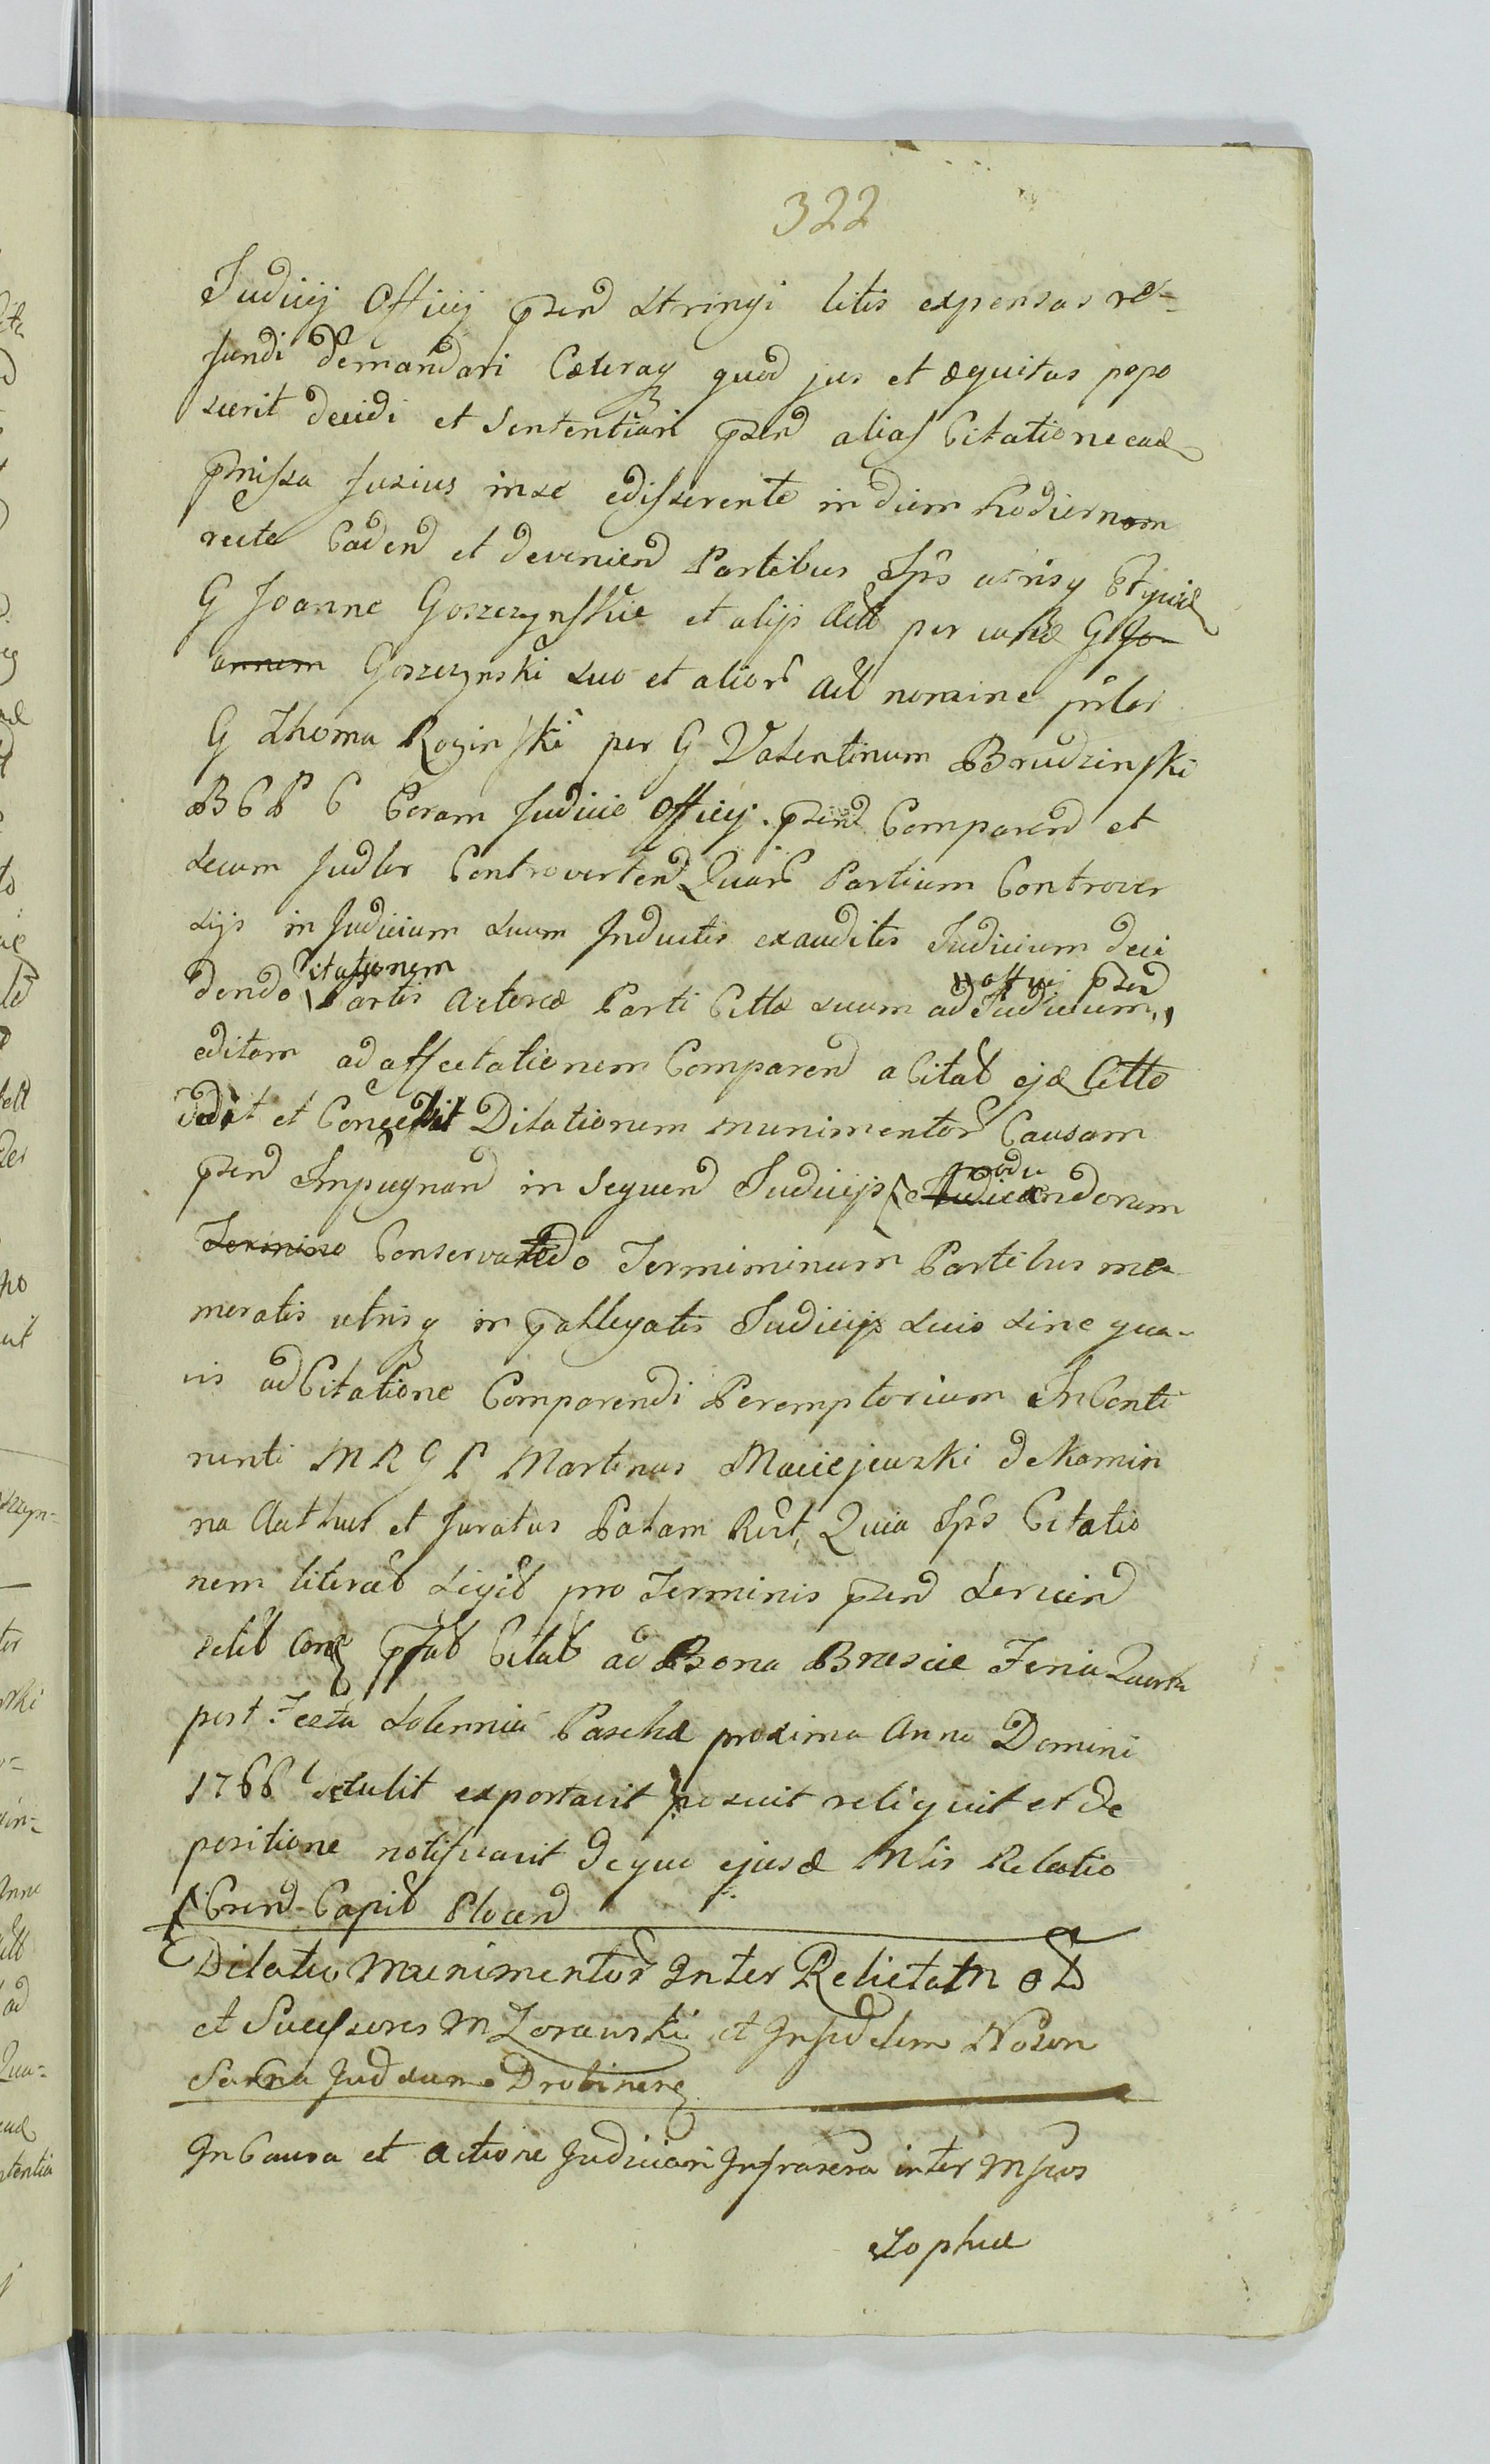 322
Judicij Officij prsend stringi litis expensas re-
fundi demandari Cæteraq quod jus et æquitas popo
scerit decidi et Sententiari prsend alias Citatione ead
prmissa fusius in se edisserente in diem hodiernam
recte Cadend et deveniend Partibus Ips utrisq
G Joanne Goszczynskie et alijs Actt per G Jo-
annem Goszczynski suo et alior Act nomine
G Thoma Rogin ski per G Valentinum Brudzinski
B C P C Coram Judicio Officij prsend Comparend et
secum Judlr Controvertend Quar Partium Controver
sijs in Judicium suum Inductis exauditis Judicium deci
dendo Citationem Partis Actoreæ Parti Cittæ suum ad Judicium offici prsend
editam ad affectationem Comparend a Citat ejd Citto
dedit et Concessit Dilationem munimentor Causam
prsend Impugnand in Sequend Judicijs modu Judicandorum
Termino Conservando Termiminum Partibus me-
moratis utrisq in prallegatis Judicijs suis sine qua-
vis adCitatione Comparendi Peremptorium InConti
nenti M R G P Martinus Maciejewski de Kamin
na Authus et Juratus Palam Rcrt, Quia Ips Citatio
nem literat Sigil pro Terminis prsend Serviend
prfat Citat ad Bona Brescie Feria Quarta
post Festa Solennia Paschæ proxima Anno Domini
1766 detulit exportavit posuit reliquit et de
positione notificavit de quo ejusd Mlis Relatio
Crend Capit Plocen
Dilatio Munimentor Inter Relictam
et Successores M Zorawski et Infidelem Noson
Judæum Drobinen
In Causa et actione Judiciari Infrascra inter Mficos
Zophiæ